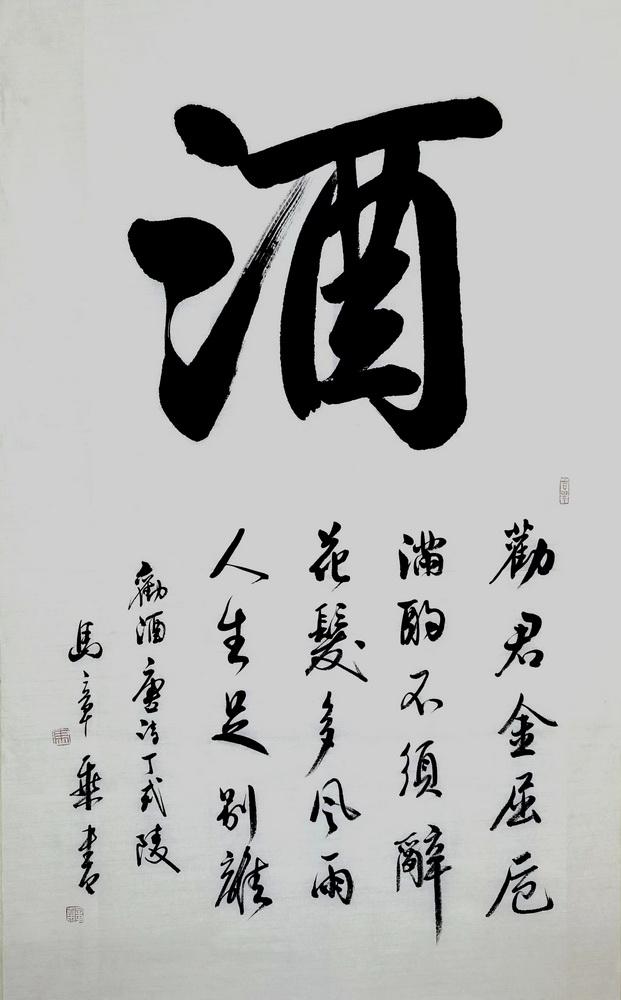 酒
勸君金屈卮
滿酌不須辭
花髮多風雨
人生足別離
勸酒唐诗丁武陵
馬章乘書